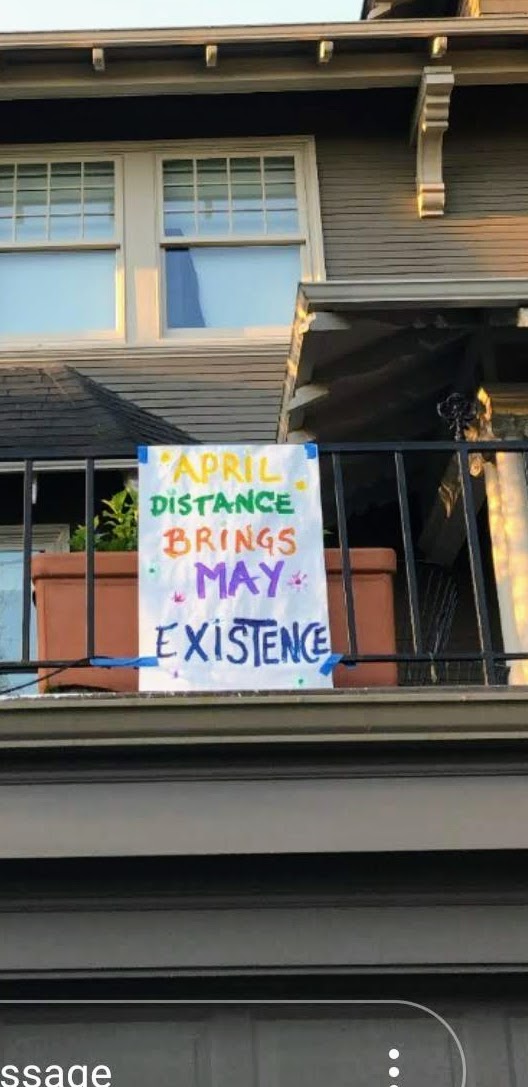 APRIL
DISTANCE
BRINGS
MAY
EXISTENCE
ssage